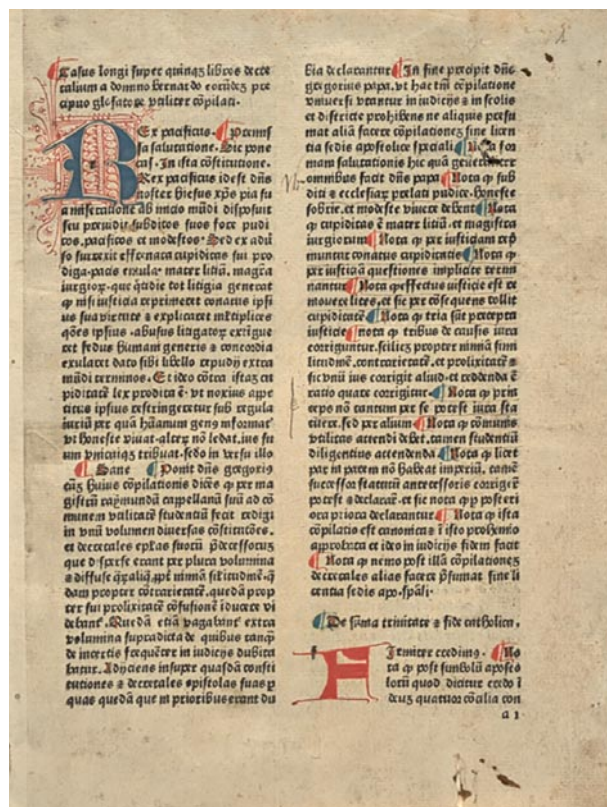 Casus longi super quinqȝ libros decre
talium a domino bernardo eorūdeȝ pre
cipuo glosatore vtiliter cōpilati.
REx pacificus. Premis
sa salutatione. Sic pone
cas. In ista cōstitutione.
Rex pacificus idest dn̄s
noster ihesus xp̄s pia su
a miseratione ab inicio mūdi disposuit
seu prouidit subditos suos fore pudi
cos.pacificos et modestos. Sed ex adu
so surrexit effrenata cupiditas sui pro
diga.pacis emula. mater litiū. magr̄a
iurgioꝝ. que q̄tidie tot litigia generat
ꝙ nisi iusticia reprimeret conatus ipsi
us sua virtute ⁊ explicaret ml̄tiplices
q̄ōes ipsius. abusus litigatoꝝ extīgue
ret fedus humani generis ⁊ concordia
exularet dato sibi libello repudij extra
mūdi terminos. Et ideo cōtra istaȝ cu
piditatē lex prodita ē. vt noxius appe
titus ipsius restringeretur sub regula
iuris per quā hūanum genꝰ informat᷑
vt honeste viuat. alterꝝ nō ledat. ius su
um vnicuiqȝ tribuat. sedo in versu illo
Sane Ponit dn̄s gregoriꝰ
cāȝ huius cōpilationis dicēs ꝙ per ma
gistrū raymundū cappellanū suū ad cō
munem vtilitatē studentiū fecit redigi
in vnū volumen diuersas cōstitutōes.
et decretales ep̄las suoꝝ p̄decessorum
que disperse erant per plura volumina
⁊ diffuse
dam propter cōtrarietatē. quedā prop
ter sui prolixitatē cōfusionē īducere vi
debant᷑. Quedā etiā vagabant᷑ extra
volumina supradicta de quibus tanqȝ
de incertis frequēter in iudicijs dubita
batur. Adijciens insuper quasdā consti
tutiones ⁊ decretales epistolas suas ꝑ
quas quedā que in prioribus erant du
bia declarantur In fine precipit dn̄s
gregorius papa. vt hac tm̄ cōpilatione
vniuersi vtantur in iudicijs ⁊ in scolis
et districte prohibens ne aliquis presu
mat aliā facere cōpilationeȝ sine licen
tia sedis apostolice speciali Nota for
mam salutationis hic quā generaliter
omnibus facit dn̄s papa Nota ꝙ sub
diti ⁊ ecclesiaꝝ prelati pudice. honeste
sobrie. et modeste viuere debent Nota
ꝙ cupiditas ē mater litiū. et magistra
iurgiorum Nota ꝙ per iusticiam repri
muntur conatus cupiditatis Nota ꝙ
per iusticiā questiones implicite termi
nantur Nota ꝙ effectus iusticie est re
mouere lites. et sic per cōsequens tollit
cupiditatē Nota ꝙ tria sūt precepta
iusticie nota ꝙ tribus de causis iura
corriguntur. scilicȝ propter nimiā simi
litudinē. contrarietatē. et prolixitatē ⁊
sic vnū ius corrigit aliud. et reddenda ē
ratio quare corrigitur. Nota ꝙ prin
ceps nō tantum per se potest iura sta
tuere. sed per alium Nota ꝙ cōmunis
vtilitas attendi debet. tamen studentiū
diligentius attendenda Nota ꝙ licet
par in parem nō habeat imperiū. tamē
successor statutū antecessoris corrigere
potest ⁊ declarare. et sic nota ꝙ ꝑ posteri
ora priora declarantur Nota ꝙ ista
cōpilatio est canonica ⁊ ī isto prohemio
approbata et ideo in iudicijs fidem facit
Nota ꝙ nemo post illā cōpilationeȝ
decretales alias facere p̄sumat sine li
centia sedis apo. sp̄ali.
De sūma trinitate ⁊ fide catholica.
FIrmiter credimꝰ. No
ta ꝙ post simbolū aposto
lorū quod dicitur credo ī
deuȝ quatuor cōcilia con
a 1